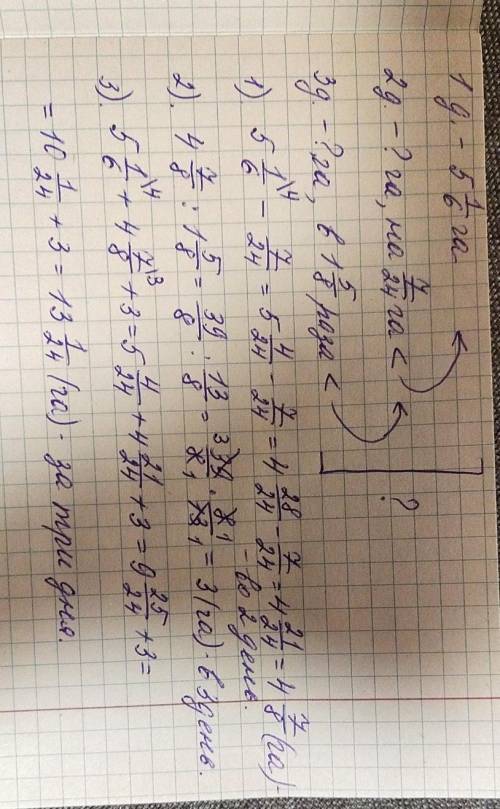 1 д. - 5 1/6 га
2 д. - ? га, на 7/24 га <
3 д. - ? га, в 1 5/8 раза <
?
1). 5 1/6\4 - 7/24 = 5 4/24 - 7/24 = 4 28/24 - 7/24 = 4 21/24 = 4 7/8 (га) -
- во 2 день.
2). 4 7/8 : 1 5/8 = 39/8 : 13/8 = 39 3/8 1 · 8 1/13 1 = 3 (га) - в 3 день.
3). 5 1/6\4 + 4 7/8\3 + 3 = 5 4/24 + 4 21/24 + 3 = 9 25/24 + 3 =
= 10 1/24 + 3 = 13 1/24 (га) - за три дня.